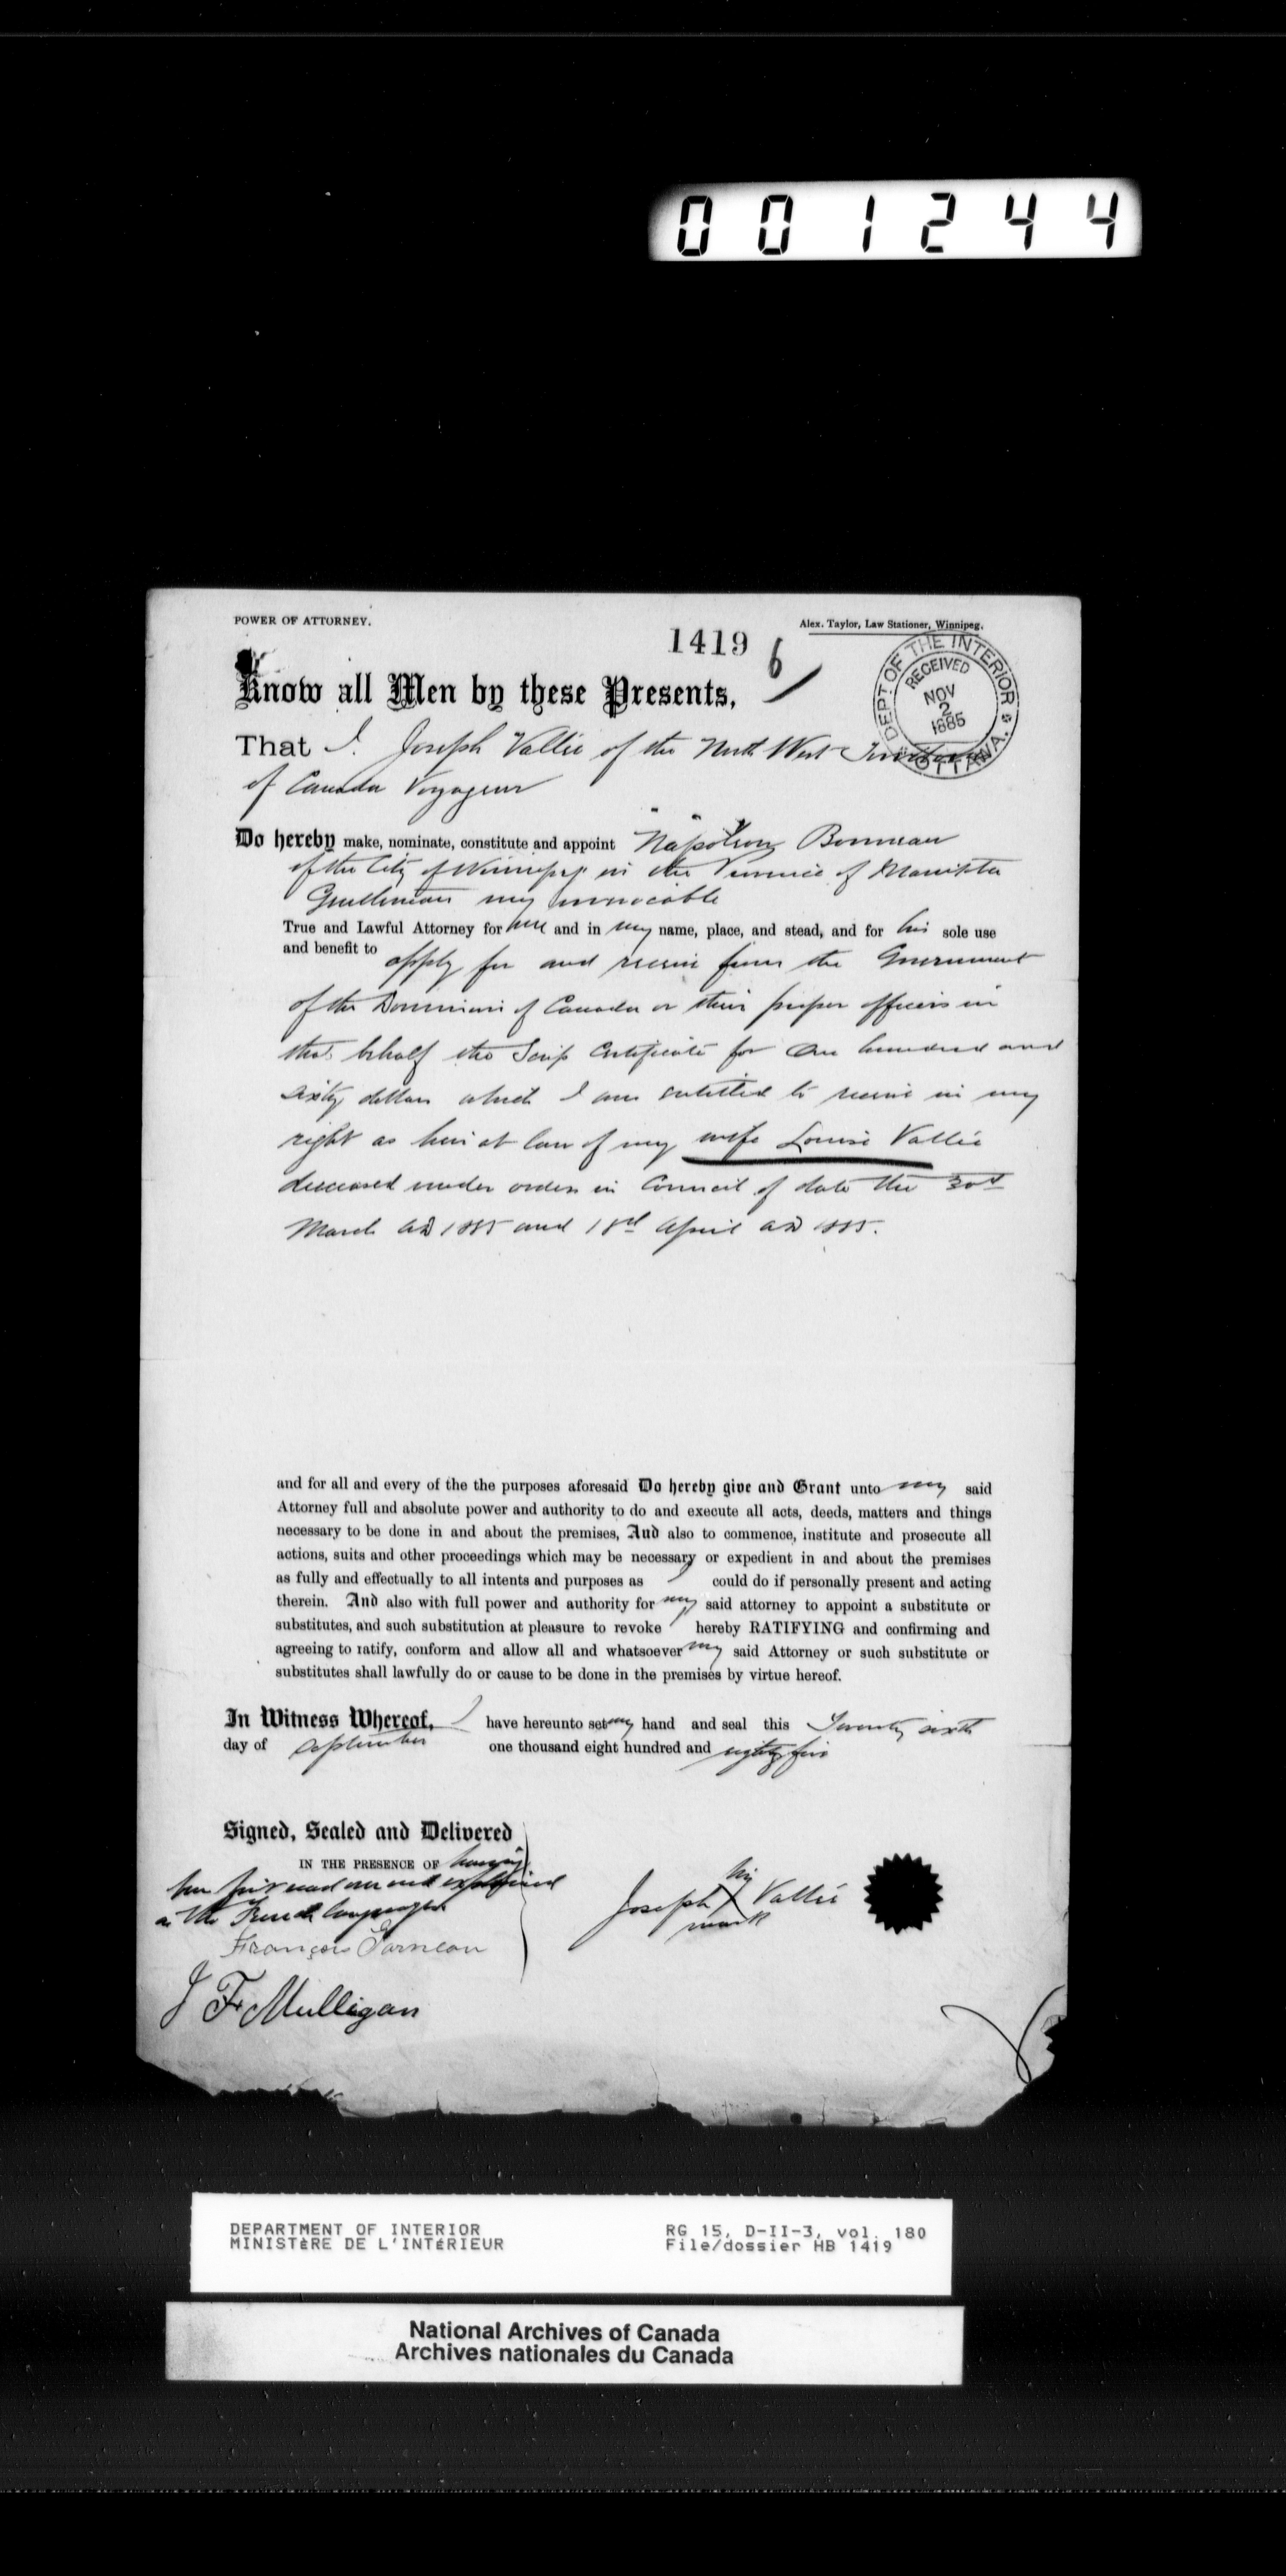 001244
POWER OF ATTORNEY.
Alex. Taylor, Law Stationer, Winnipeg.
1419
6
DEPT OF THE INTERIOR
RECEIVED
NOV
2
1885
OTTAWA.
Know all Men by these Presents,
That I. Joseph Vallie of the North West Territories
of Canada Voyageur
Do hereby make, nominate, constitute and appoint Napoleon Bonneau
of the City of Winnipeg in the Province of Manitoba
Gentleman my irrevocable
True and Lawful Attorney for me and in my name, place, and stead, and for his sole use
and benefit to apply for and receive from the Government
of the Dominion of Canada or their proper officers in
that behalf the Scrip Certificate for One hundred and
sixty dollars which I am entitled to receive in my
right as heir at law of my wife Louise Vallie
deceased under orders in Council of date the 30th
March AD 1885 and 18th April AD 1885.
and for all and every of the the purposes aforesaid Do hereby give and Grant unto my said
Attorney full and absolute power and authority to do and execute all acts, deeds, matters and things
necessary to be done in and about the premises, And also to commence, institute and prosecute all
actions, suits and other proceedings which may be necessary or expedient in and about the premises
as fully and effectually to all intents and purposes as I could do if personally present and acting
therein. And also with full power and authority for my said attorney to appoint a substitute or
substitutes, and such substitution at pleasure to revoke I hereby RATIFYING and confirming and
agreeing to ratify, conform and allow all and whatsoever my said Attorney or such substitute or
substitutes shall lawfully do or cause to be done in the premises by virtue hereof.
In Witness Whereof, I have hereunto set my hand and seal this Twenty sixth
day of September one thousand eight hundred and eighty five
Signed, Sealed and Delivered
IN THE PRESENCE OF having
been first read over and explained
in the French language
François Garneau
J F Mulligan
his
Joseph X Vallie
mark
DEPARTMENT OF INTERIOR
MINISTÈRE DE L'INTÉRIEUR
RG 15, D-II-3, vol. 180
File/dossier HB 1419
National Archives of Canada
Archives nationales du Canada